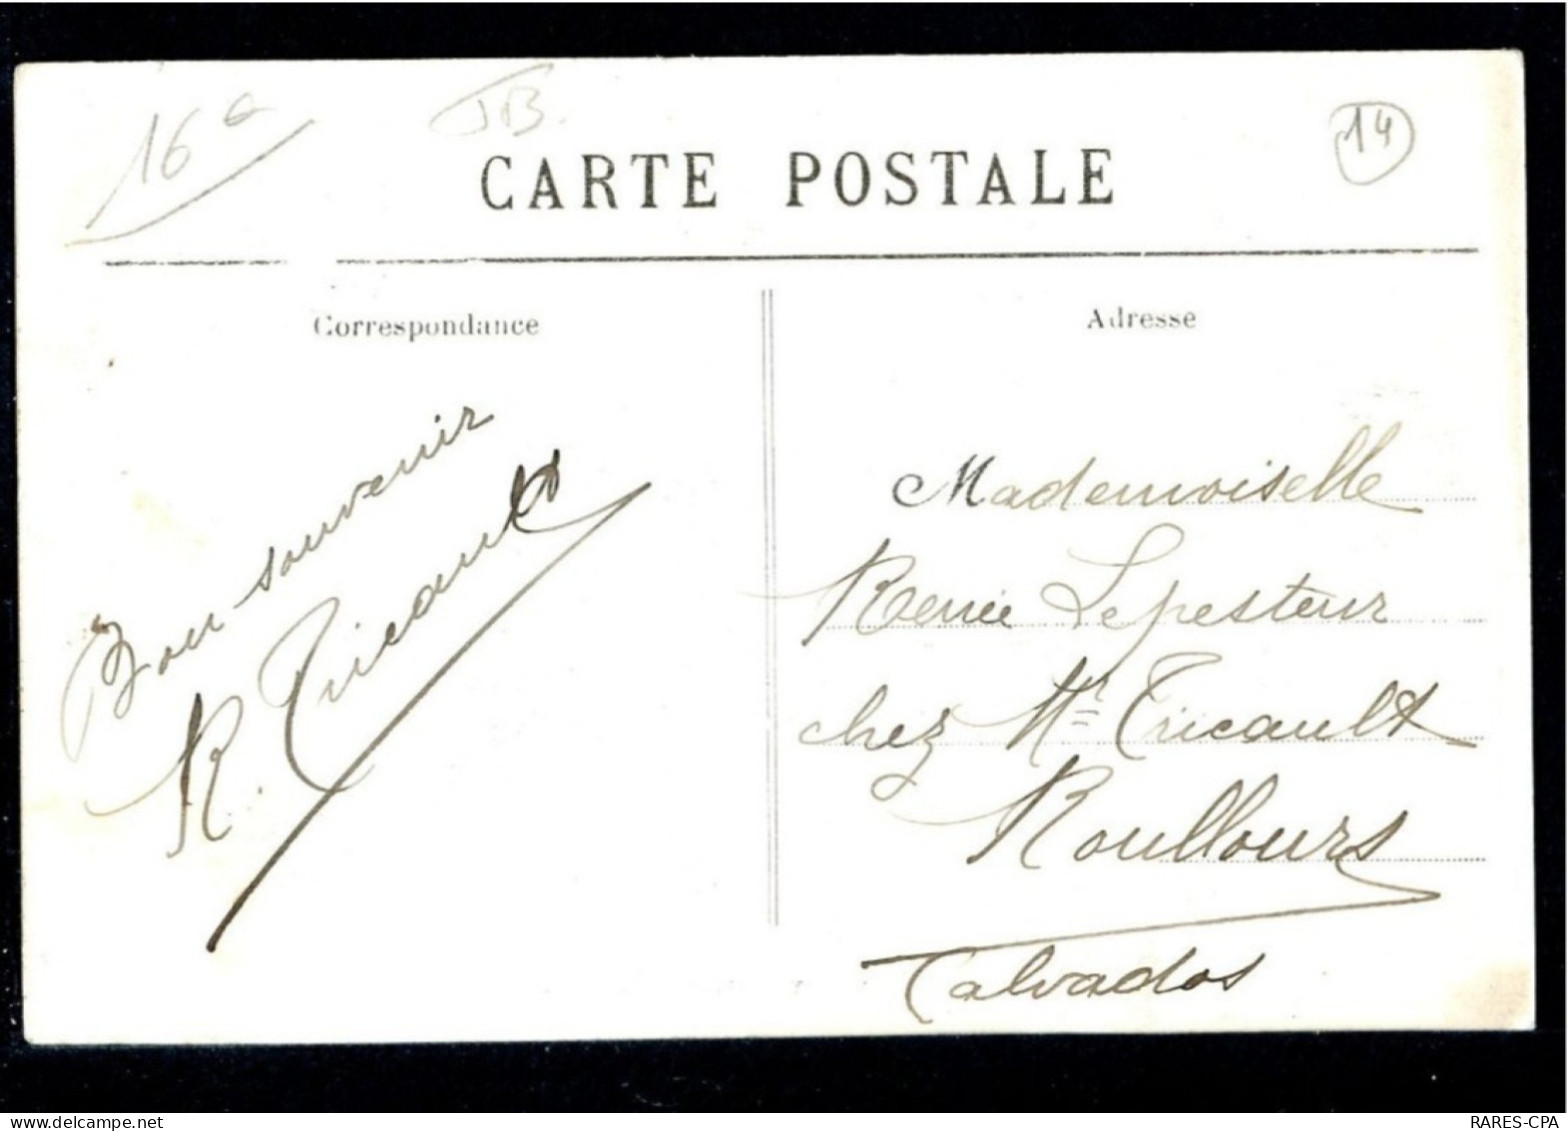 16 €
JB.
14
CARTE POSTALE
Correspondance
Bon souvenir
R. Tricault
Adresse
Mademoiselle
Renée Lepesteur
chez Mr Tricault
Roullours
Calvados
RARES-CPA